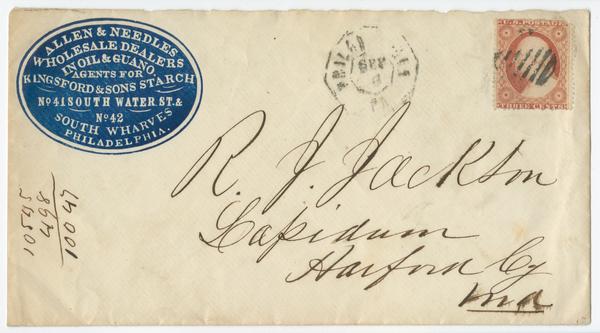 ALLEN & NEEDLES
WHOLESALE DEALERS
IN OIL & GUANO.
AGENTS FOR
KINGSFORD & SONS STARCH
No 41 SOUTH WATER. ST. &
No 42
SOUTH WHARVES
PHILADELPHIA.
SEP
PA
U.S. POSTAGE
THREE CENTS
R. J. Jackson
Lapidum
Harford Cy
Md
10545
498
10047